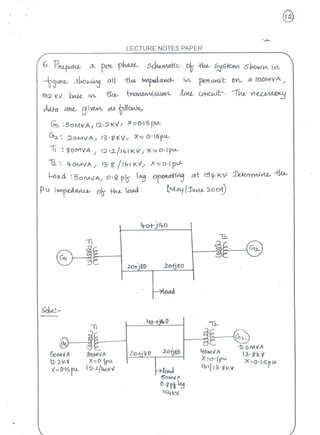 12
LECTURE NOTES PAPER
6. Prepare a per phase schematic of the system shown in
figure showing all the impedance in per unit on a 100MVA,
132 KV base in the transmission line circuit. The necessary
data are given as follows,
G1 : 50MVA, 12.2KV, X=0.15pu
G2 : 20MVA, 13.8KV, X=0.15pu
T1 : 80MVA, 12.2/161KV, X=0.1pu
T2 : 40MVA, 13.8/161KV, X=0.1pu
Load : 50MVA, 0.8 pf lag operating at 154KV. Determine the
Pu impedance of the load. (May/June 2009)
40+j160
T1
T2
G1
G2
20+j80
20+j80
load
Soln:-
T1
T2
20+j80
20+j80
50MVA
12.2KV
X=0.15pu
80MVA
X=0.1pu
12.2/161KV
load
50MVA
0.8pf lag
154KV
40MVA
X=0.1pu
161/13.8KV
G2
20MVA
13.8KV
X=0.15pu